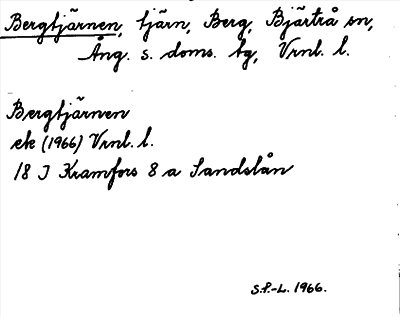 Bergtjärnen, tjärn, Berg, Bjärtrå sn,
Ång. s. doms. tg, Vrnl. l.
Bergtjärnen
ek (1966) Vrnl. l.
18 I Kramfors 8 a Sandslån
S.P.-L. 1966.